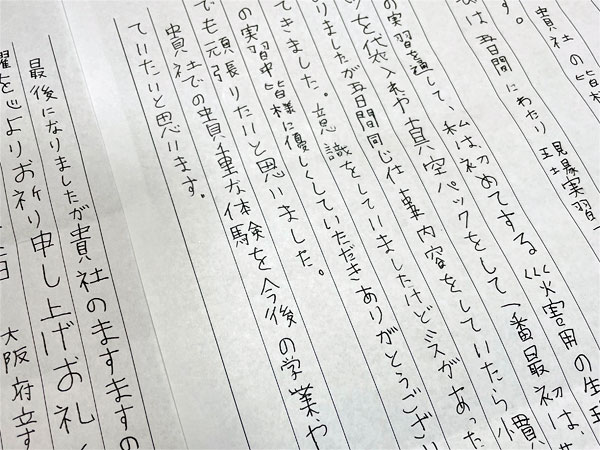 貴社の皆
す。
は五日間にわたり現場実習
の実習を通して、私は初めてする災害用の生
を袋入れや真空パックをして一番最初は、
りましたが五日間同じ仕事内容をしていたら慣
てきました。意識をしていましたけどミスがあった
の実習中皆様に優しくしていただきありがとうござ
でも頑張りたいと思いました。
貴社での貴重な体験を今後の学業や
ていたいと思います。
最後になりましたが貴社のますますの
躍を心よりお祈り申し上げお礼
日 大阪府立